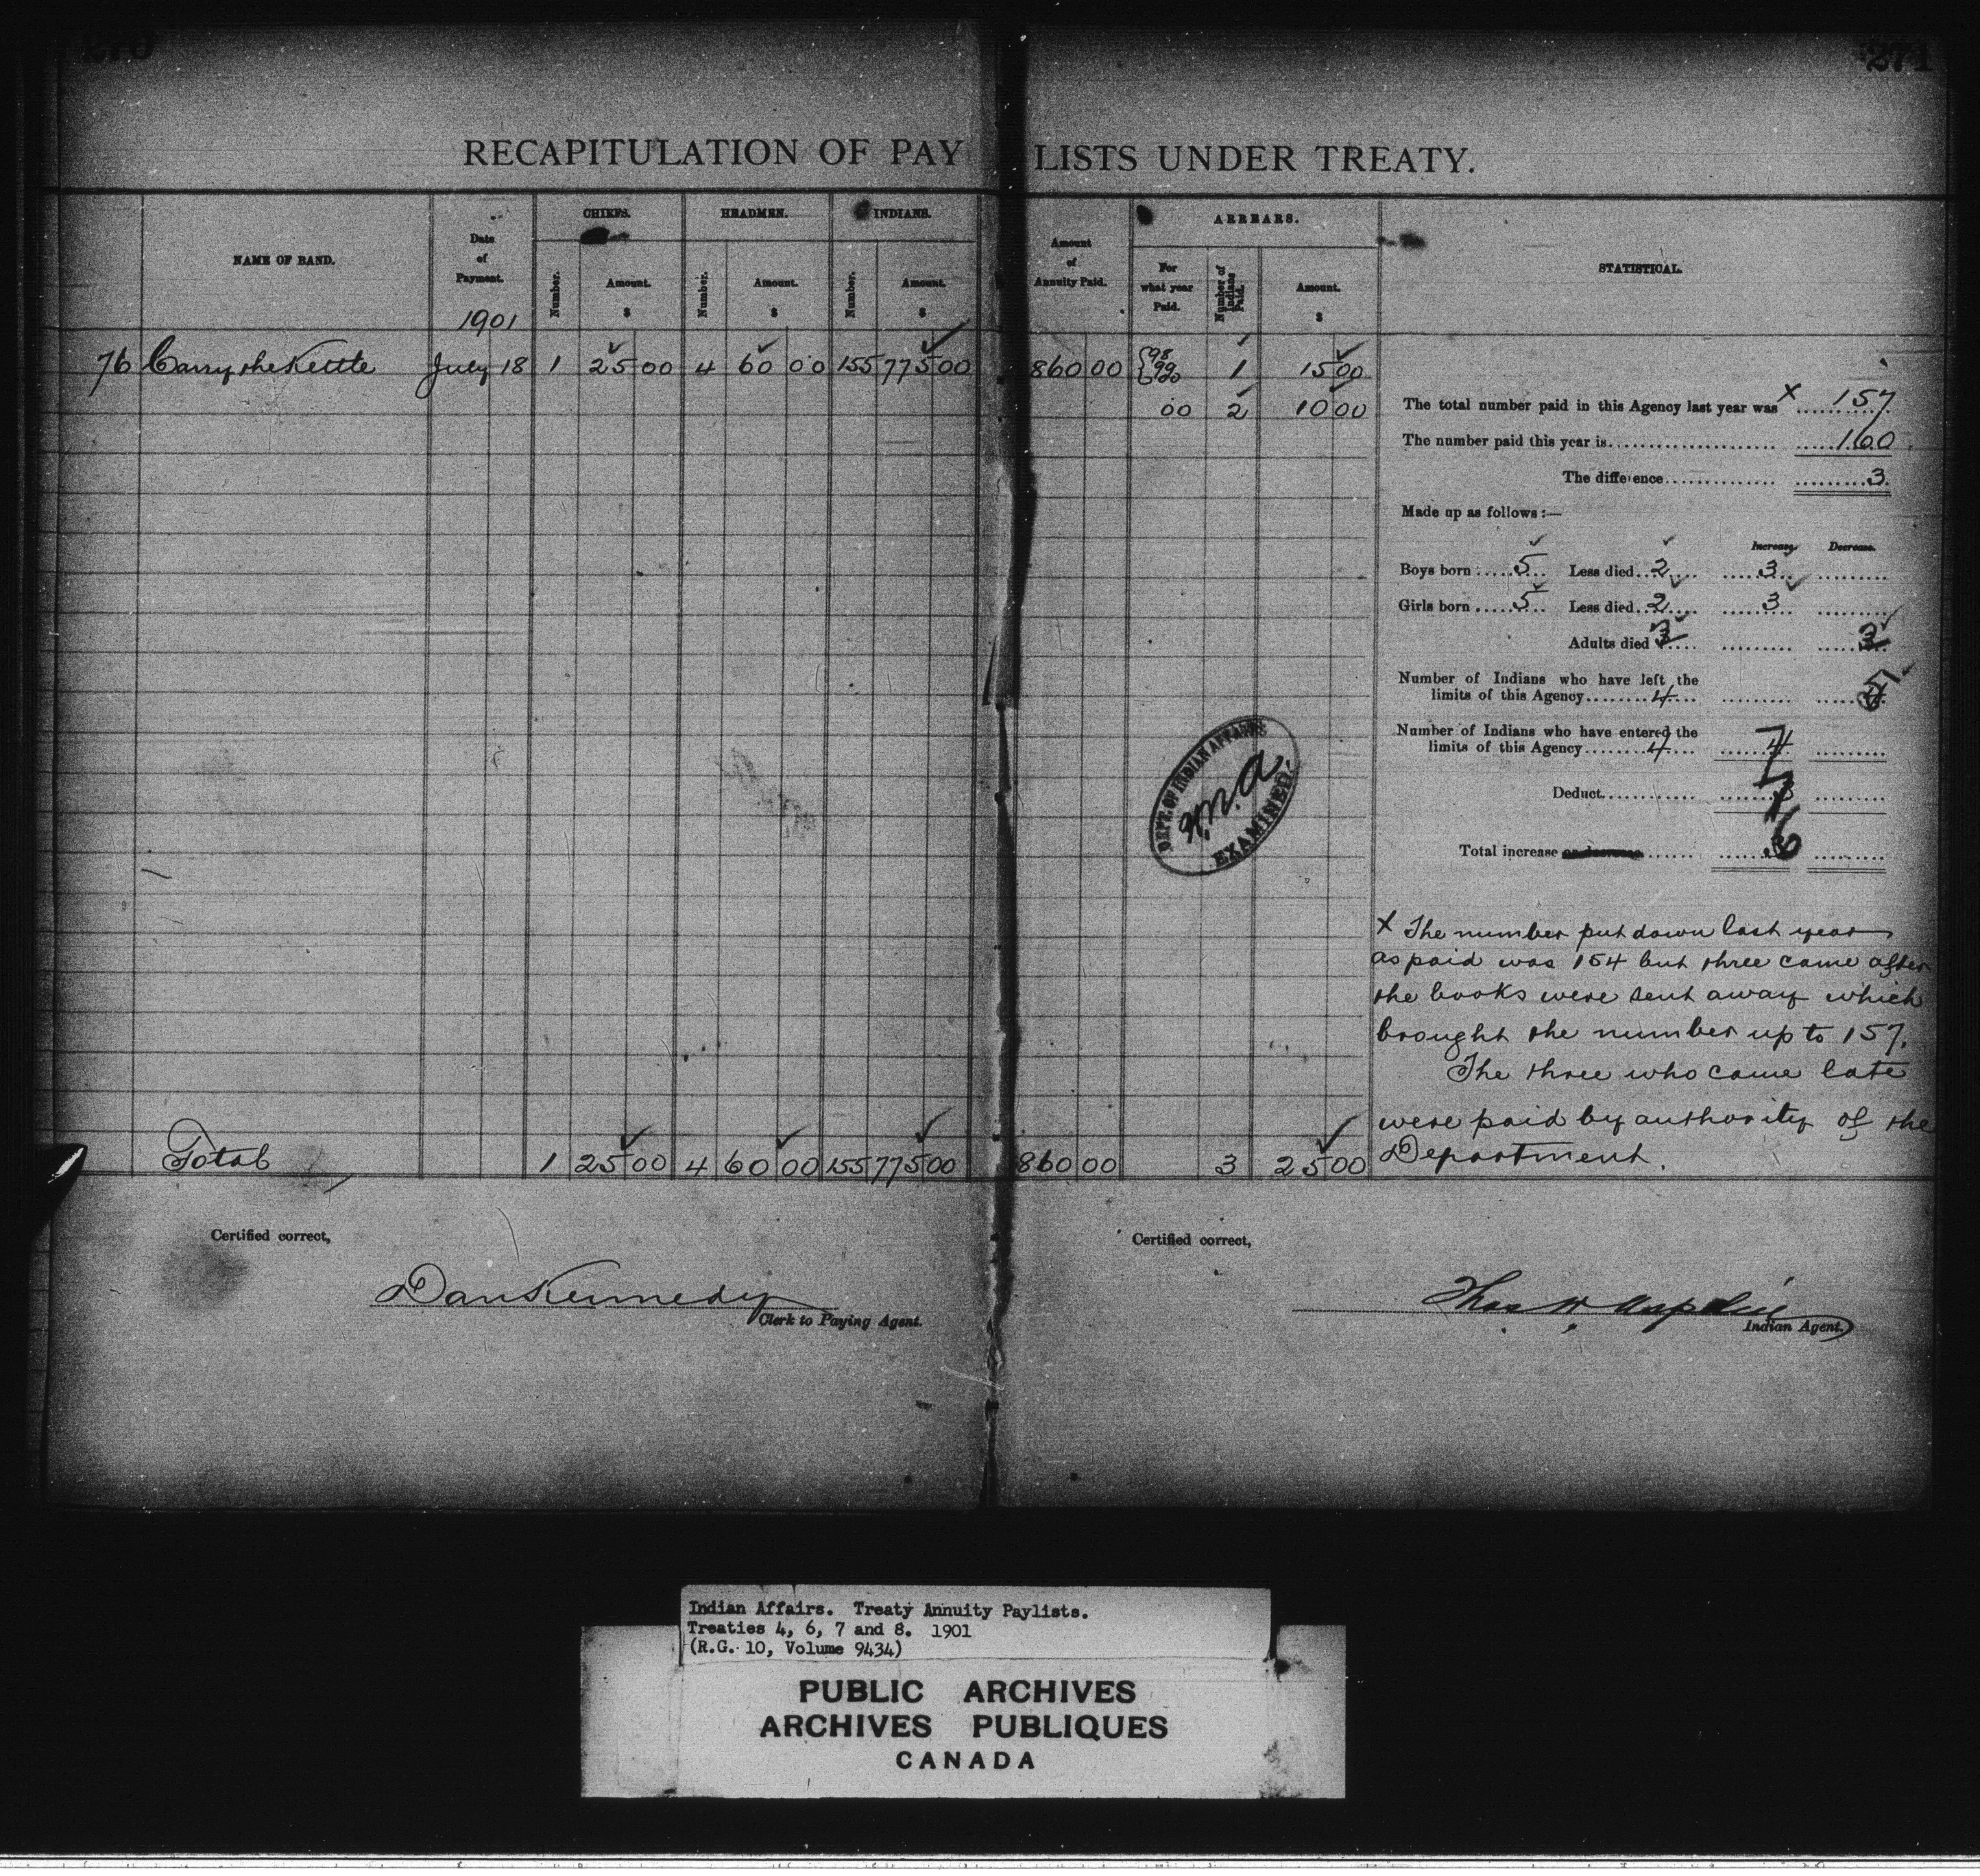 270
271
RECAPITULATION OF PAY LISTS UNDER TREATY.
NAME OF BAND.
Date of Payment.
1901
CHIEFS.
Number.
Amount.
$
HEADMEN.
Number.
Amount.
$
INDIANS.
Number.
Amount.
$
Amount of Annuity Paid.
ARREARS.
For what year Paid.
Number of Indians Paid.
Amount.
$
STATISTICAL.
76 Carry the Kettle July 18 1 25 00 4 60 00 155 775 00 860 00 98 99 1 15 00
00 2 10 00
The total number paid in this Agency last year was x 157
The number paid this year is 160
The difference 3
Made up as follows:—
Increase. Decrease.
Boys born 5 Less died 2 3
Girls born 5 Less died 2 3
Adults died
Number of Indians who have left the
limits of this Agency 4
Number of Indians who have entered the
limits of this Agency 4 4
Deduct
Total increase or decrease 6
DEPT. OF INDIAN AFFAIRS
EXAMINED.
x The number put down last year
as paid was 154 but three came after
the books were sent away which
brought the number up to 157.
The three who came late
were paid by authority of the
Department.
Total 1 25 00 4 60 00 155 775 00 860 00 3 25 00
Certified correct,
Dan Kennedy
Clerk to Paying Agent.
Certified correct,
Thos W Aspdin
Indian Agent.
Indian Affairs. Treaty Annuity Paylists.
Treaties 4, 6, 7 and 8. 1901
(R.G. 10, Volume 9434)
PUBLIC ARCHIVES
ARCHIVES PUBLIQUES
CANADA